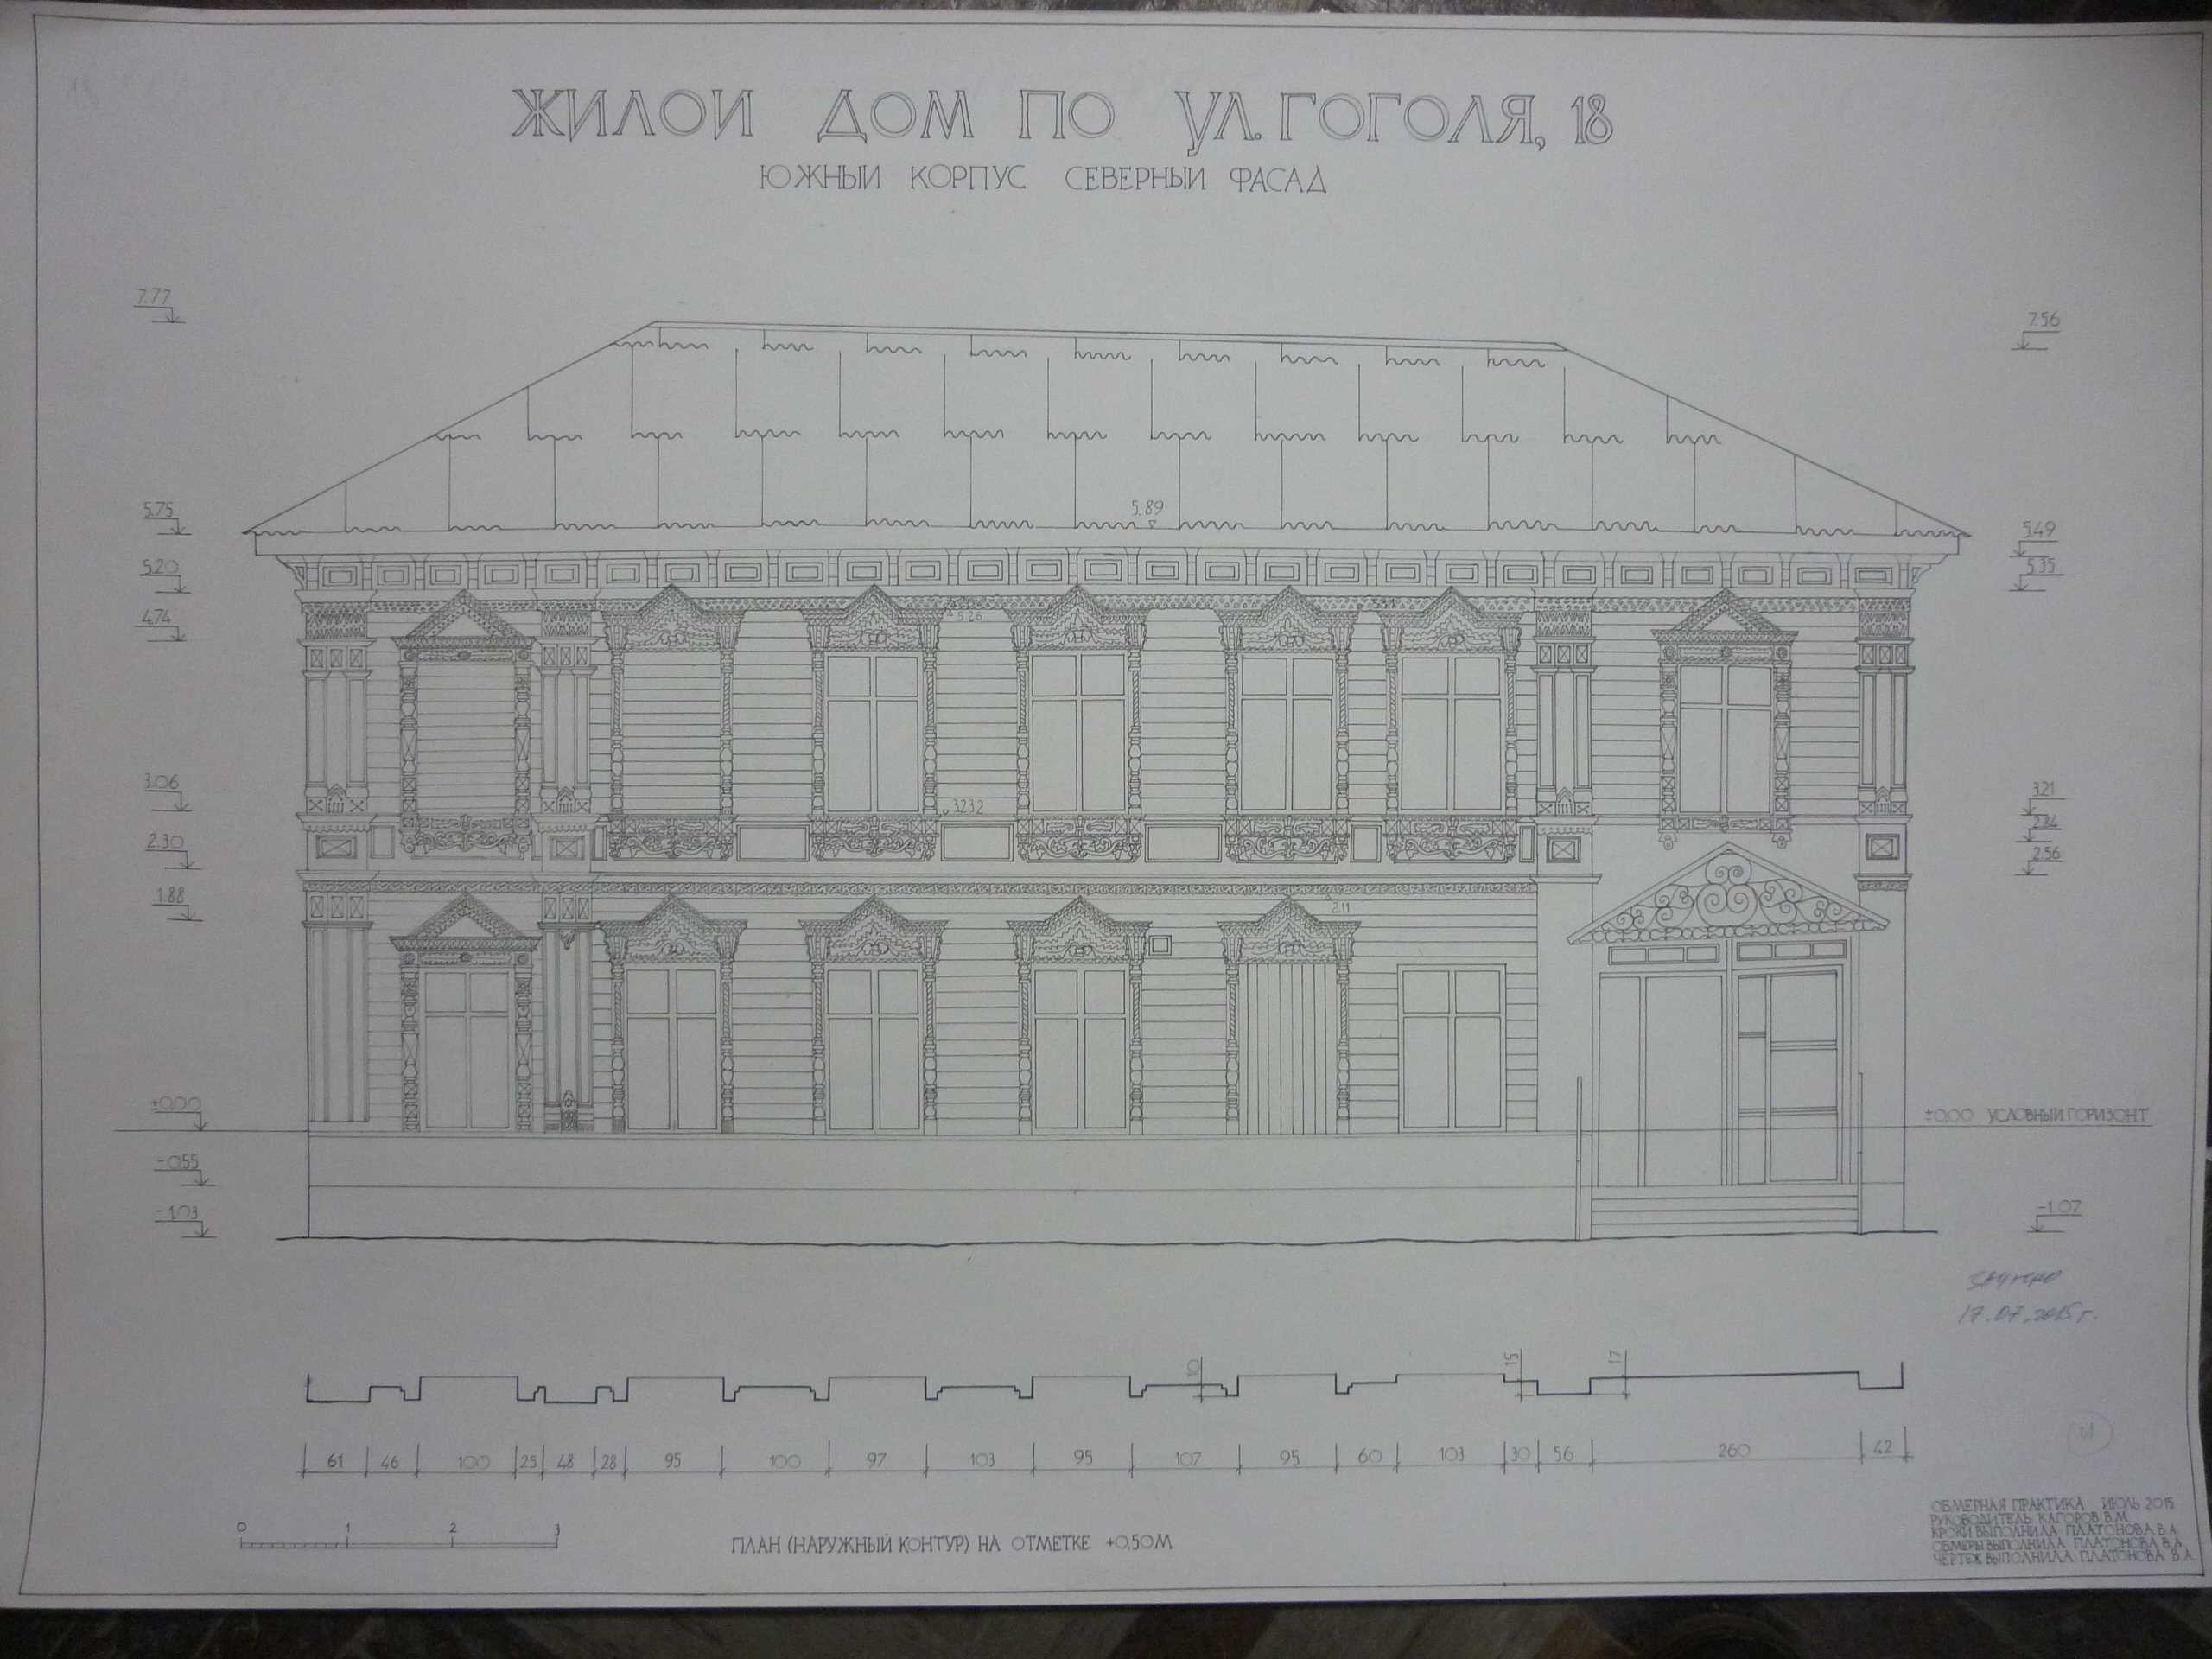 ЖИЛОЙ ДОМ ПО УЛ. ГОГОЛЯ, 18
ЮЖНЫЙ КОРПУС СЕВЕРНЫЙ ФАСАД
7.77
7.56
5.75
5.89
5.49
5.20
5.35
4.74
5.26
3.06
3.232
3.21
2.30
2.56
1.88
2.11
±0.00
±0.00 УСЛОВНЫЙ ГОРИЗОНТ
-0.55
-1.03
-1.07
зачтено
17.07.2015 г.
10
15
17
61 46 100 25 48 28 95 100 97 103 95 107 95 60 103 30 56 260 42
0 1 2 3
ПЛАН (НАРУЖНЫЙ КОНТУР) НА ОТМЕТКЕ +0.50М
ОБМЕРНАЯ ПРАКТИКА ИЮЛЬ 2015
РУКОВОДИТЕЛЬ КАГОРОВ В.М.
КРОКИ ВЫПОЛНИЛА ПЛАТОНОВА В.А.
ОБМЕРЫ ВЫПОЛНИЛА ПЛАТОНОВА В.А.
ЧЕРТЕЖ ВЫПОЛНИЛА ПЛАТОНОВА В.А.